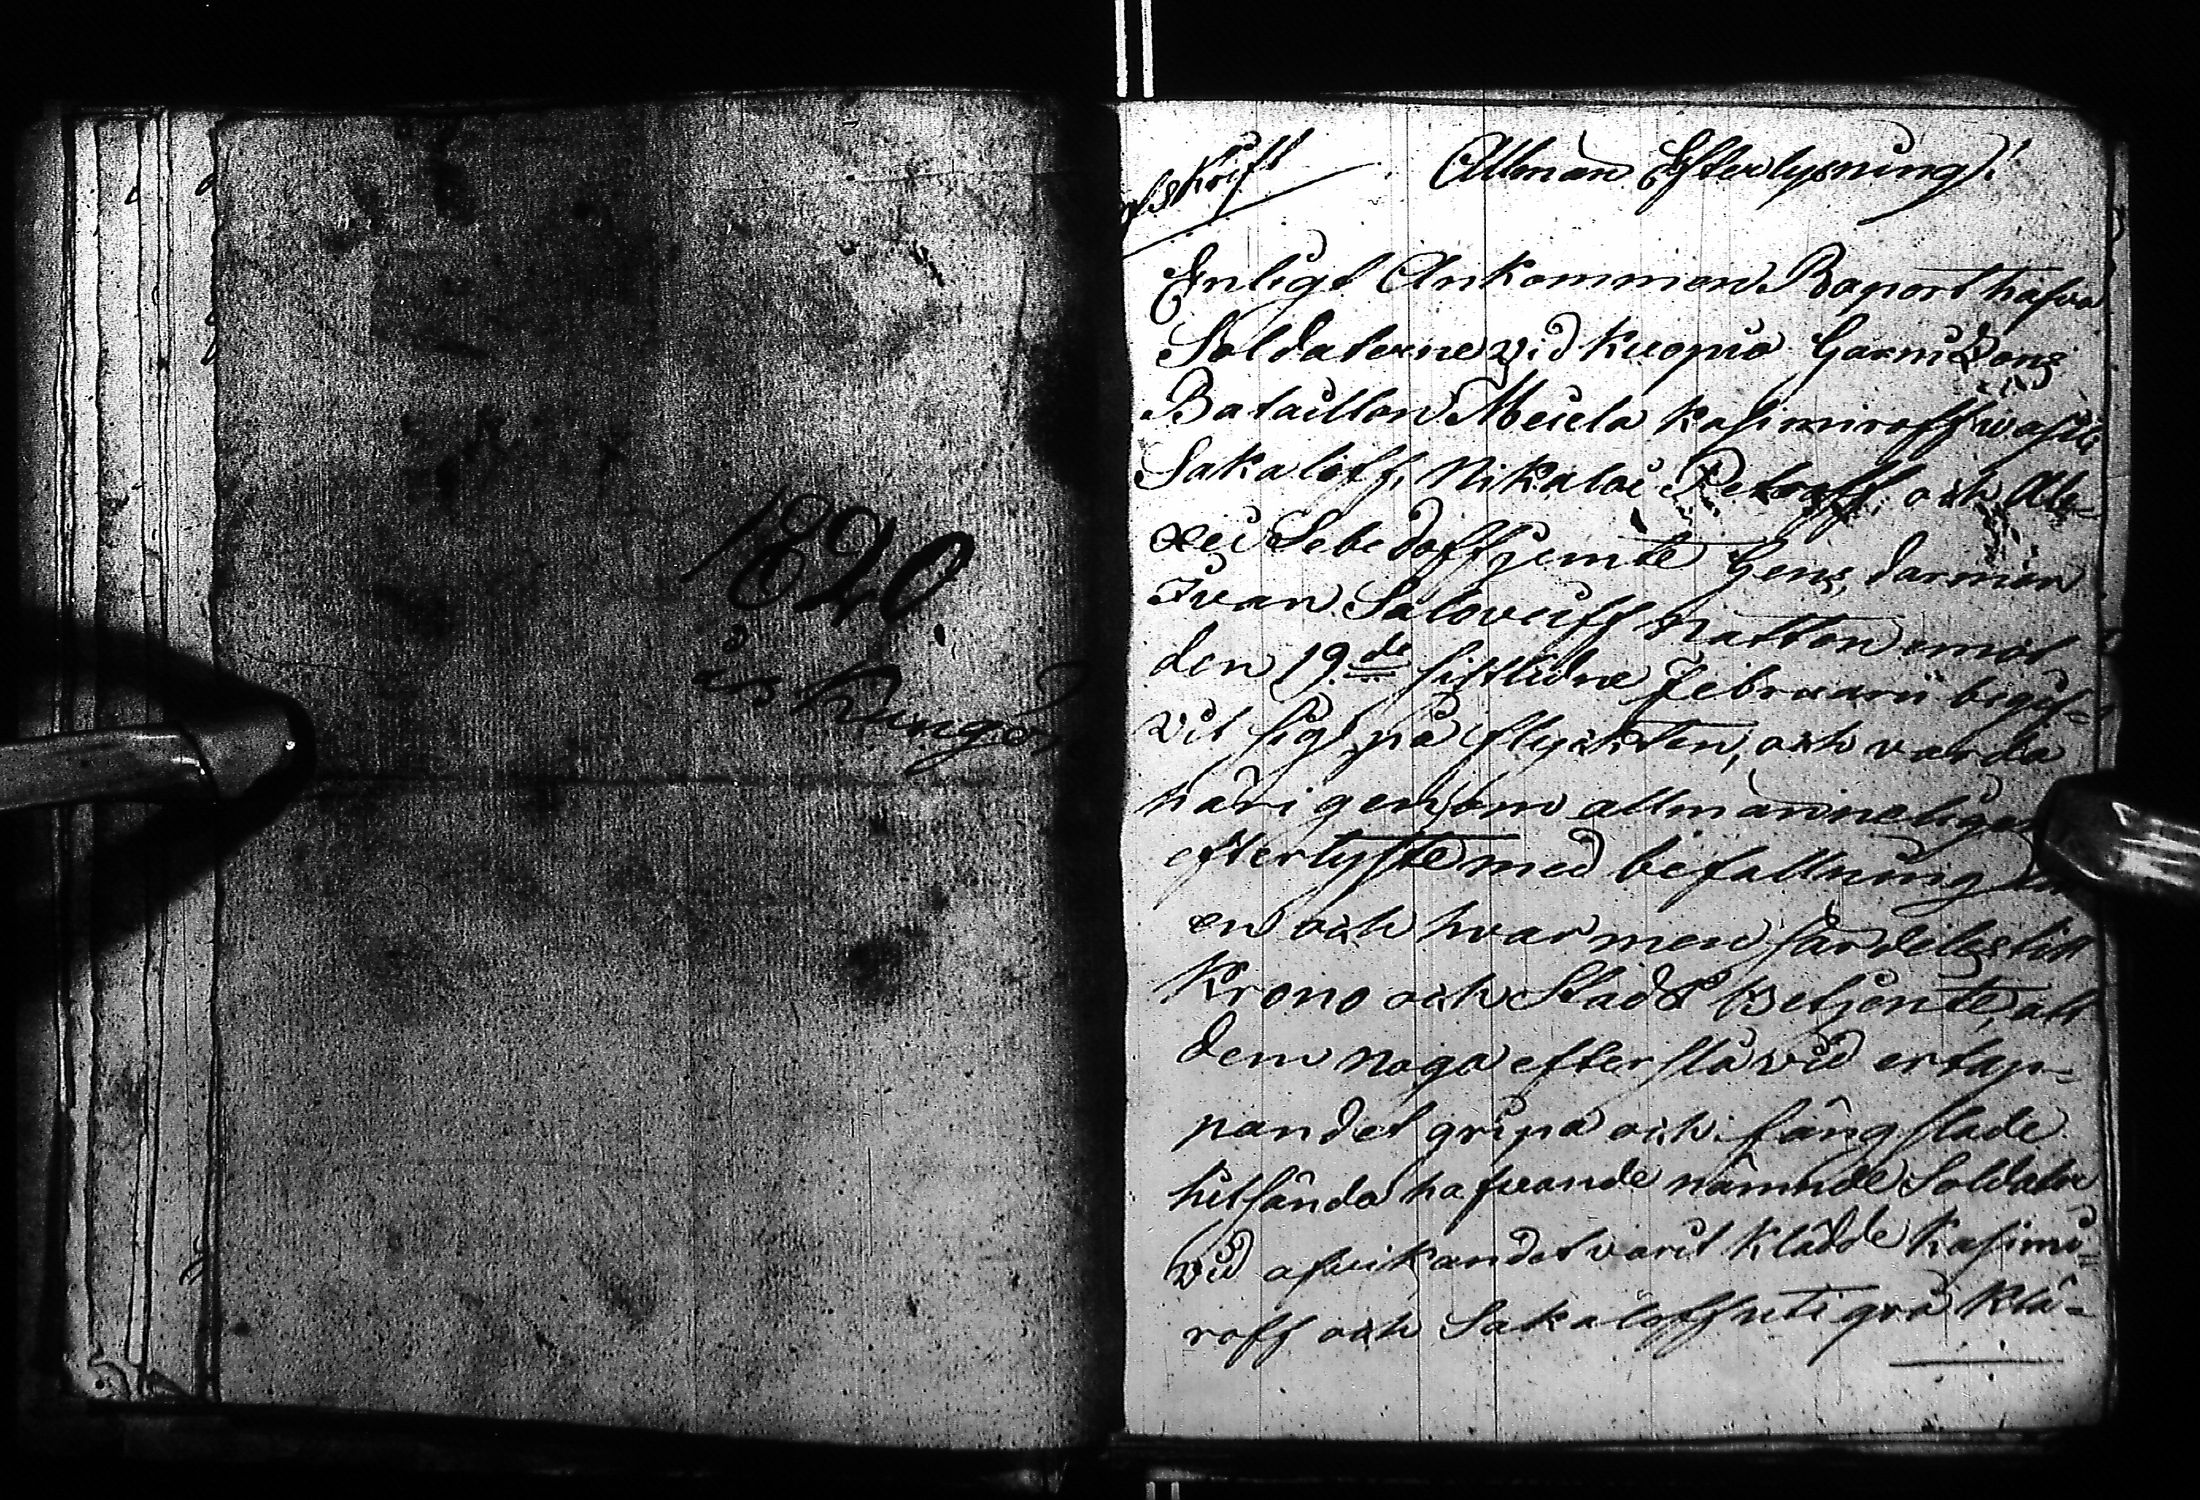 1820.
års Kungör
afskrift
Allmän Efterlysning!
Enligt Ankommen Raport hafva
Soldaterne vid Kuopio Garnizons
Bataillon Meiela Kasimiroff wasili
Sakaloff, Nikaloi Petroff och Ale-
xei Sebedoff jemte Gens darmen
Ivan Saloveiff natten emot
den 19de sistledne Februarii begif-
vit sig på flyckten, och varda
härigenom allmänneligen
efterlyste med befallning
en och hvar men särdeles till
Krono och Stads Betjente, att
dem noga efterslå vid ertap-
pandet gripa och fångslade
hitsända hafvande nämnde Soldater
vid afvikandet varit klädde Kasimi-
roff och Sakaloff uti grå klä-